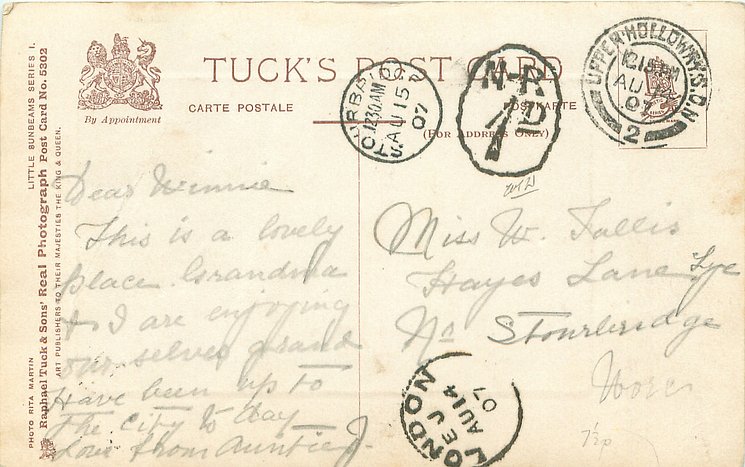 LITTLE SUNBEAMS SERIES I.
PHOTO RITA MARTIN
Raphael Tuck & Sons' Real Photograph Post Card No. 5302
ART PUBLISHERS TO THEIR MAJESTIES THE KING & QUEEN.
By Appointment
TUCK'S POST CARD
CARTE POSTALE
POSTKARTE
(FOR ADDRESS ONLY)
STOURBRIDGE
12.30AM
AU 15
07
UPPER HOLLOWAY S.O.N
12.15PM
AU
07
2
Dear Winnie
This is a lovely
place. Grandma
& I are enjoying
our selves grand
have been up to
The City to day
Love from Auntie J.
Miss W. Fallis
Hayes Lane Lye
Nr Stourbridge
Worcs
LONDON
E J
AU 14
07
7½p